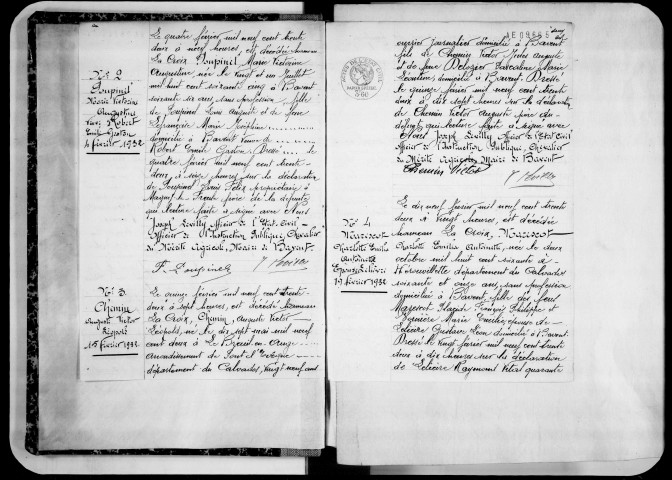 Le quatre février mil neuf cent trente
deux à neuf heures, est décédée hameau
La Croix Poupinel Marie Victorine
Augustine née le vingt et un juillet
mil huit cent soixante cinq à Bavent
soixante six ans sans profession, fille
de Poupinel Louis Auguste et de feue
Lefrançois Marie Joséphine
domiciliée à Bavent, Veuve de
Robert Emile Gaston. Dressé le
quatre février mil neuf cent trente
deux, à seize heures sur la déclaration
de Poupinel Louis Félix propriétaire à
frère de la défunte
qui lecture faite a signé avec Nous
Joseph Levilly Officier de l'Etat Civil
Officier de l'Instruction Publique, Chevalier
du Mérite Agricole, Maire de Bavent.
F. Poupinel
N° 2
Poupinel
Marie Victorine
Augustine
Veuve Robert
Emile Gaston
4 février 1932
N° 3
Chemin
Auguste Victor
Léopold
15 février 1932
Le quinze février mil neuf cent trente
deux à sept heures, est décédé hameau
La Croix, Chemin, Auguste Victor
Léopold, né le dix sept mai mil neuf
cent deux à Le Breuil en Auge
arrondissement de Pont l'Evêque
département du Calvados, vingt neuf ans
ouvrier journalier domicilié à Bavent
fils de Chemin Victor Jules Auguste
et de feue Marie
domicilié à Bavent. Dressé
le quinze février mil neuf cent trente
deux à dix sept heures sur la déclaration
de Chemin Victor Auguste père du
défunt, qui lecture faite a signé avec
Nous Joseph Levilly, Officier de l'Etat Civil
Officier de l'Instruction Publique, Chevalier
du Mérite Agricole, Maire de Bavent
Chemin Victor
N° 4
Marescot
Charlotte Emilia
Antoinette
Epouse Lelièvre
19 février 1932
Le dix neuf février mil neuf cent trente
deux à vingt heures, est décédée
hameau La Croix, Marescot
Charlotte Emilia Antoinette, née le deux
octobre mil huit cent soixante
Hérouvillette département du Calvados
soixante et onze ans, sans profession
domiciliée à Bavent, fille des feus
Marescot François Philippe et
Marie épouse de
Lelièvre Gustave Léon domicilié à Bavent.
Dressé le vingt février mil neuf cent trente
deux à dix heures sur la déclaration
de Lelièvre Raymond Victor quarante